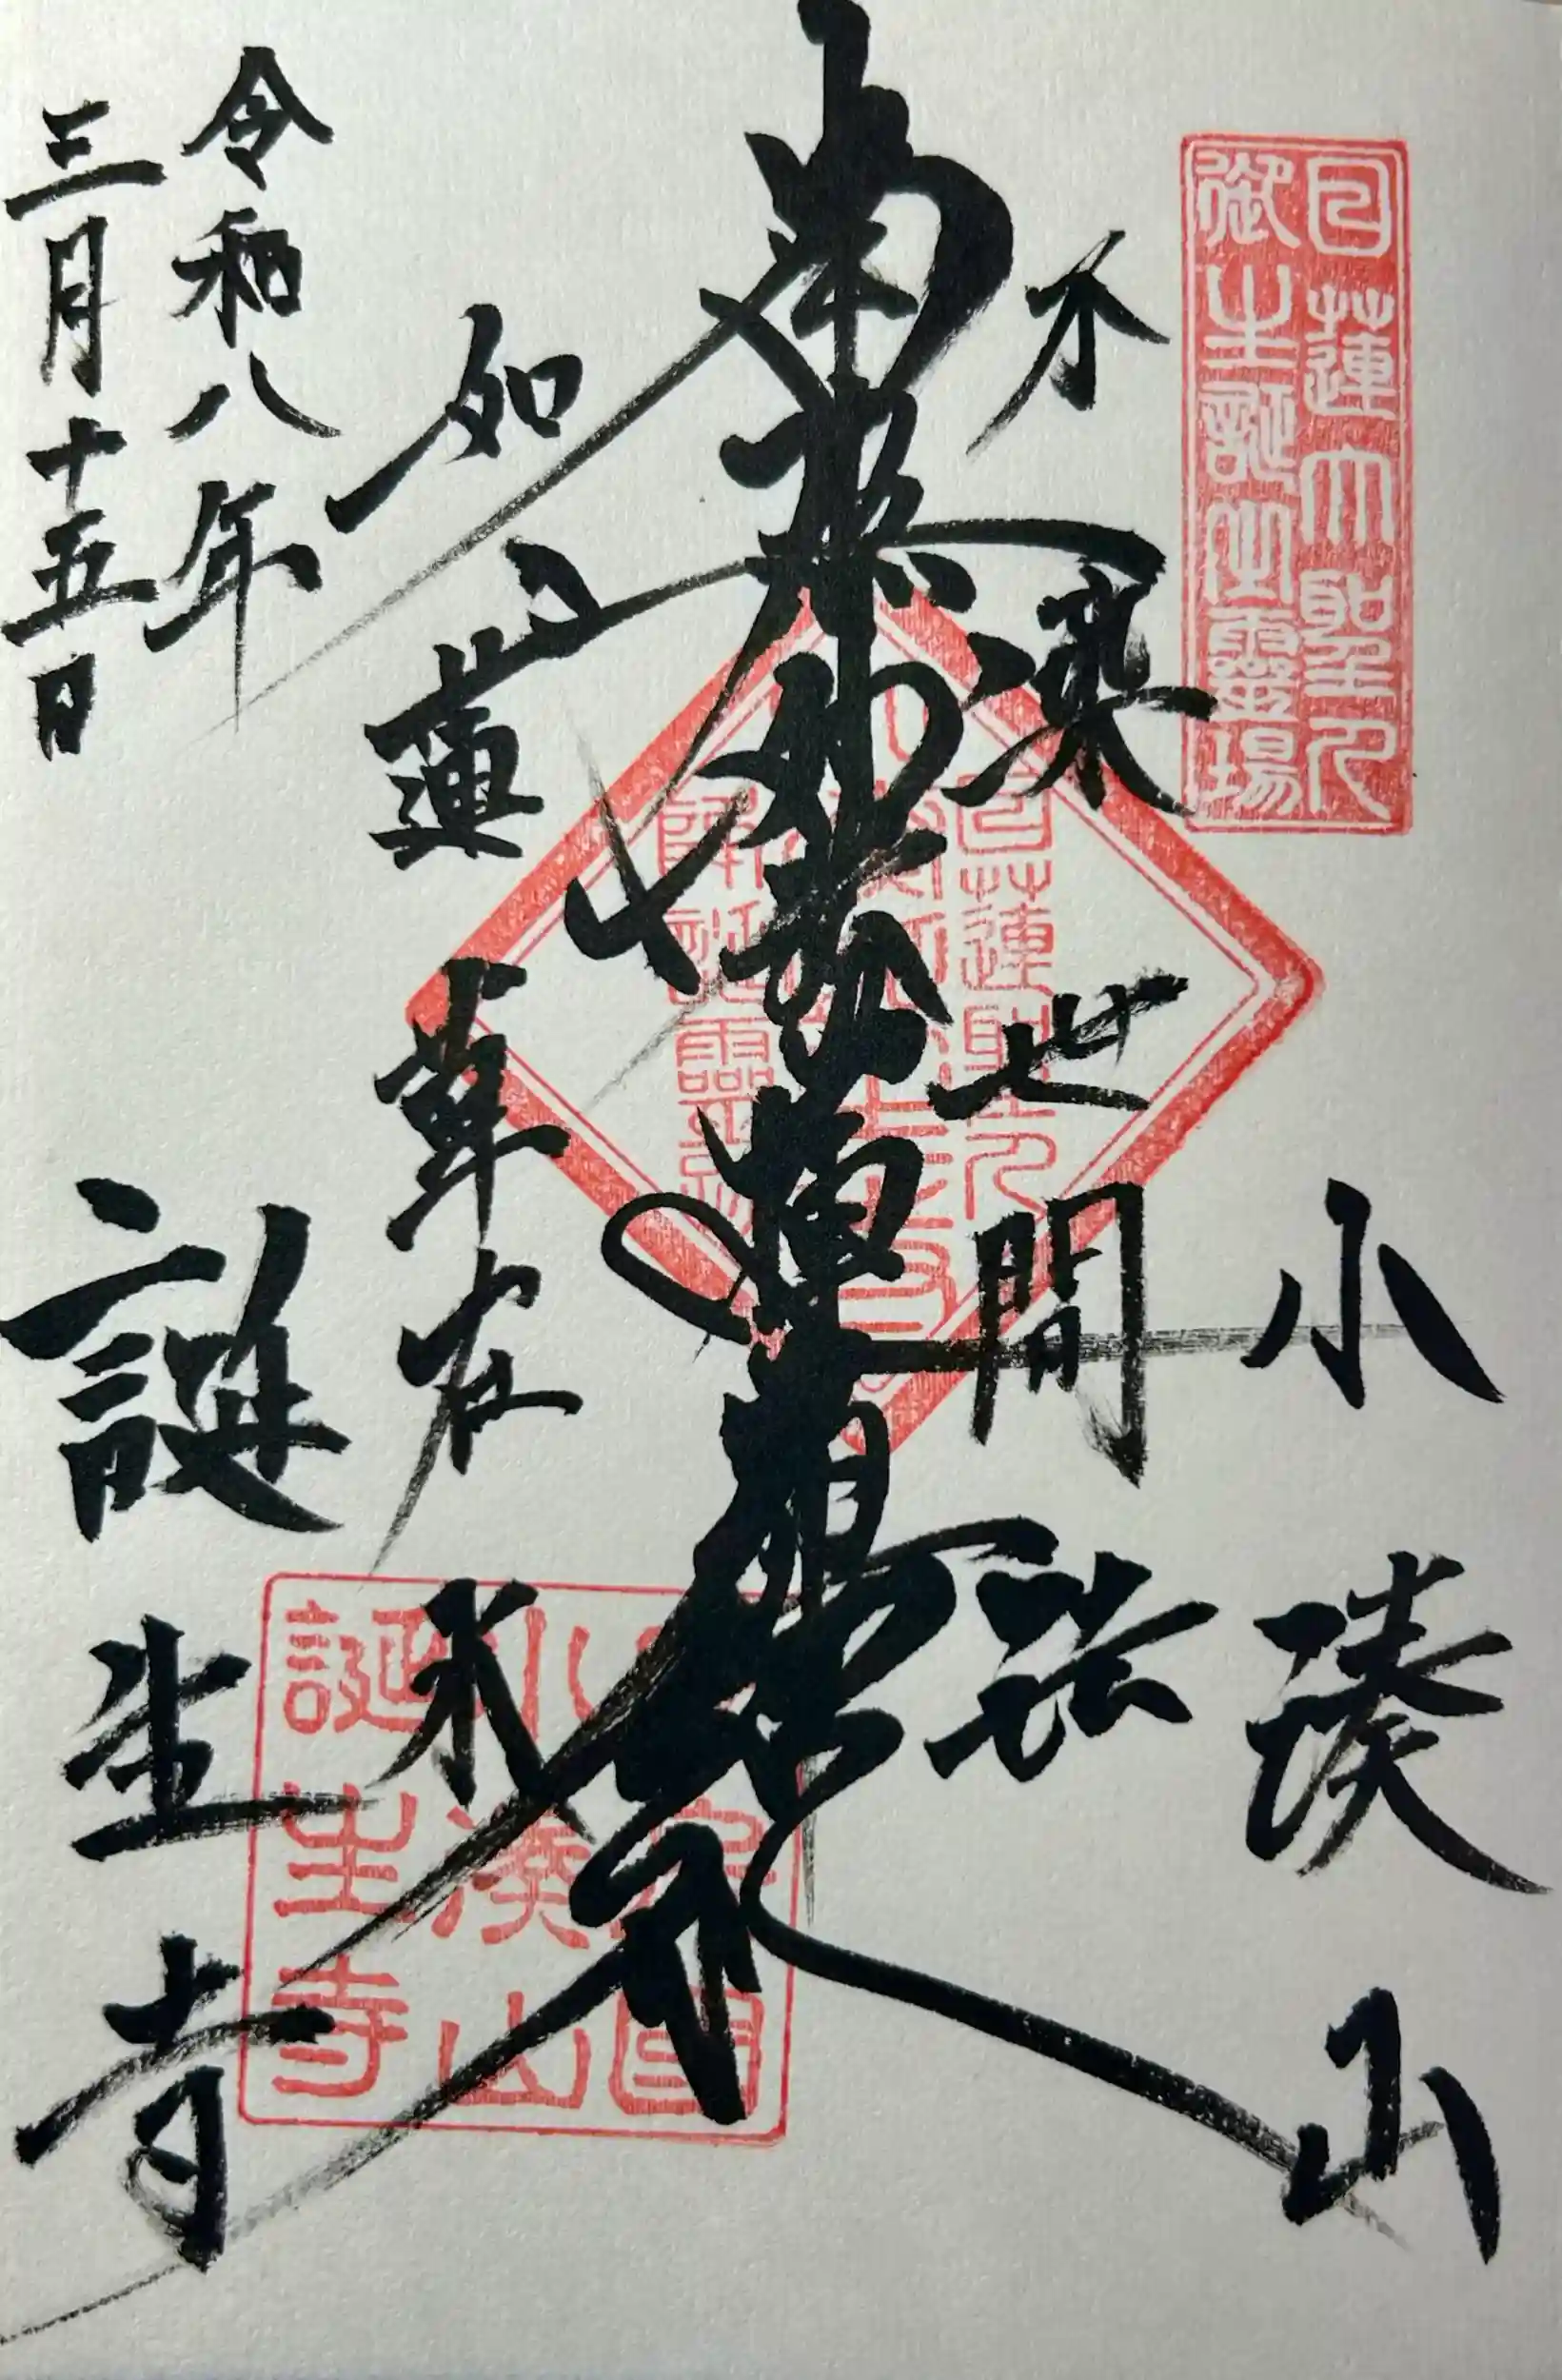 日蓮大聖人
御生誕之靈場
小湊山
不染世間法
南無妙法蓮華経
如蓮華在水
誕生寺
令和八年
三月十五日
日蓮聖人
降誕靈場
小湊山
誕生寺